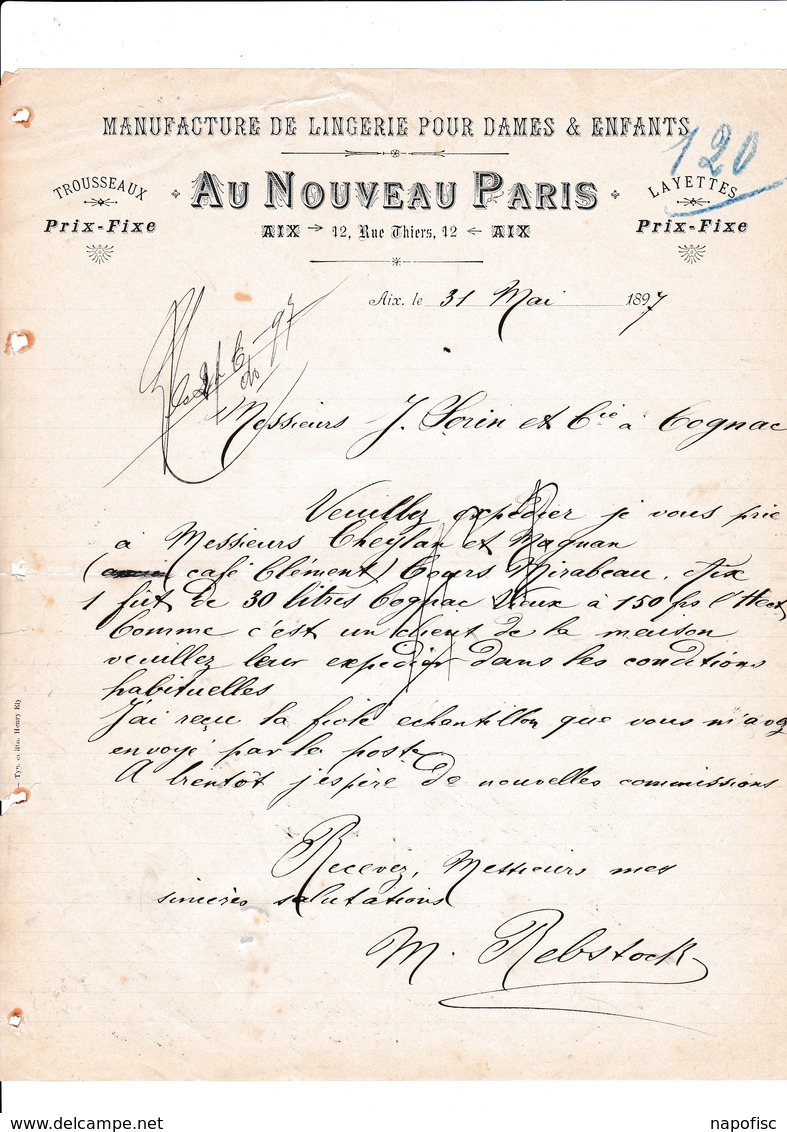 MANUFACTURE DE LINGERIE POUR DAMES & ENFANTS
120
TROUSSEAUX
Prix-Fixe
AU NOUVEAU PARIS
LAYETTES
Prix-Fixe
AIX 12, Rue Thiers, 12 AIX
Aix, le 31 Mai 1897
Messieurs J. Sorin et Cie à Cognac
Veuillez expédier je vous prie
à Messieurs Cheylan et Magnan
(café Clément) Cours Mirabeau, Aix
1 fût de 30 litres Cognac Vieux à 150 frs l'Hect
Comme c'est un client de la maison
veuillez leur expédier dans les conditions
habituelles
J'ai reçu la fiole échantillon que vous m'avez
envoyé par la poste
A bientôt j'espère de nouvelles commissions
Recevez, Messieurs mes
sincères salutations
M. Rebstock
Typ. et lith. Henry Ely
napofisc